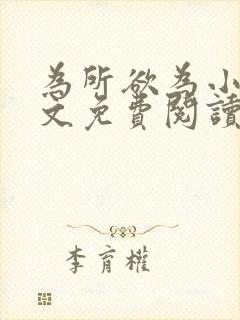 為所欲為小
文免費閱讀
李育權